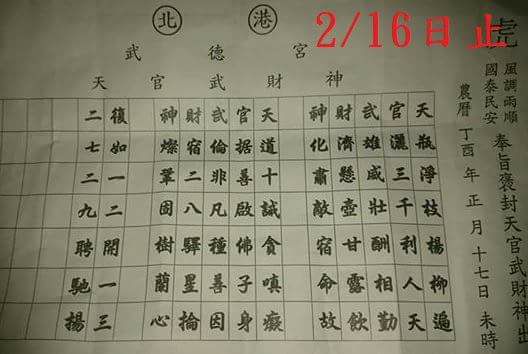 北港
武德宮
天官武財神
2/16日 止
虎
風調雨順
國泰民安
奉旨褒封天官武財神出
農曆 丁酉年正月十七日未時
天瓶淨枝楊柳遍
官灑三千利人天
武雄威壯酬相勤
財濟懸壺甘露飲
神化肅敵宿命故
天道十誠貪嗔癡
官据善啟佛子身
武倫非凡種善因
財宿二八驛星掄
神燦鞏固樹蘭心
復如一二開一三
二七二九聘馳揚